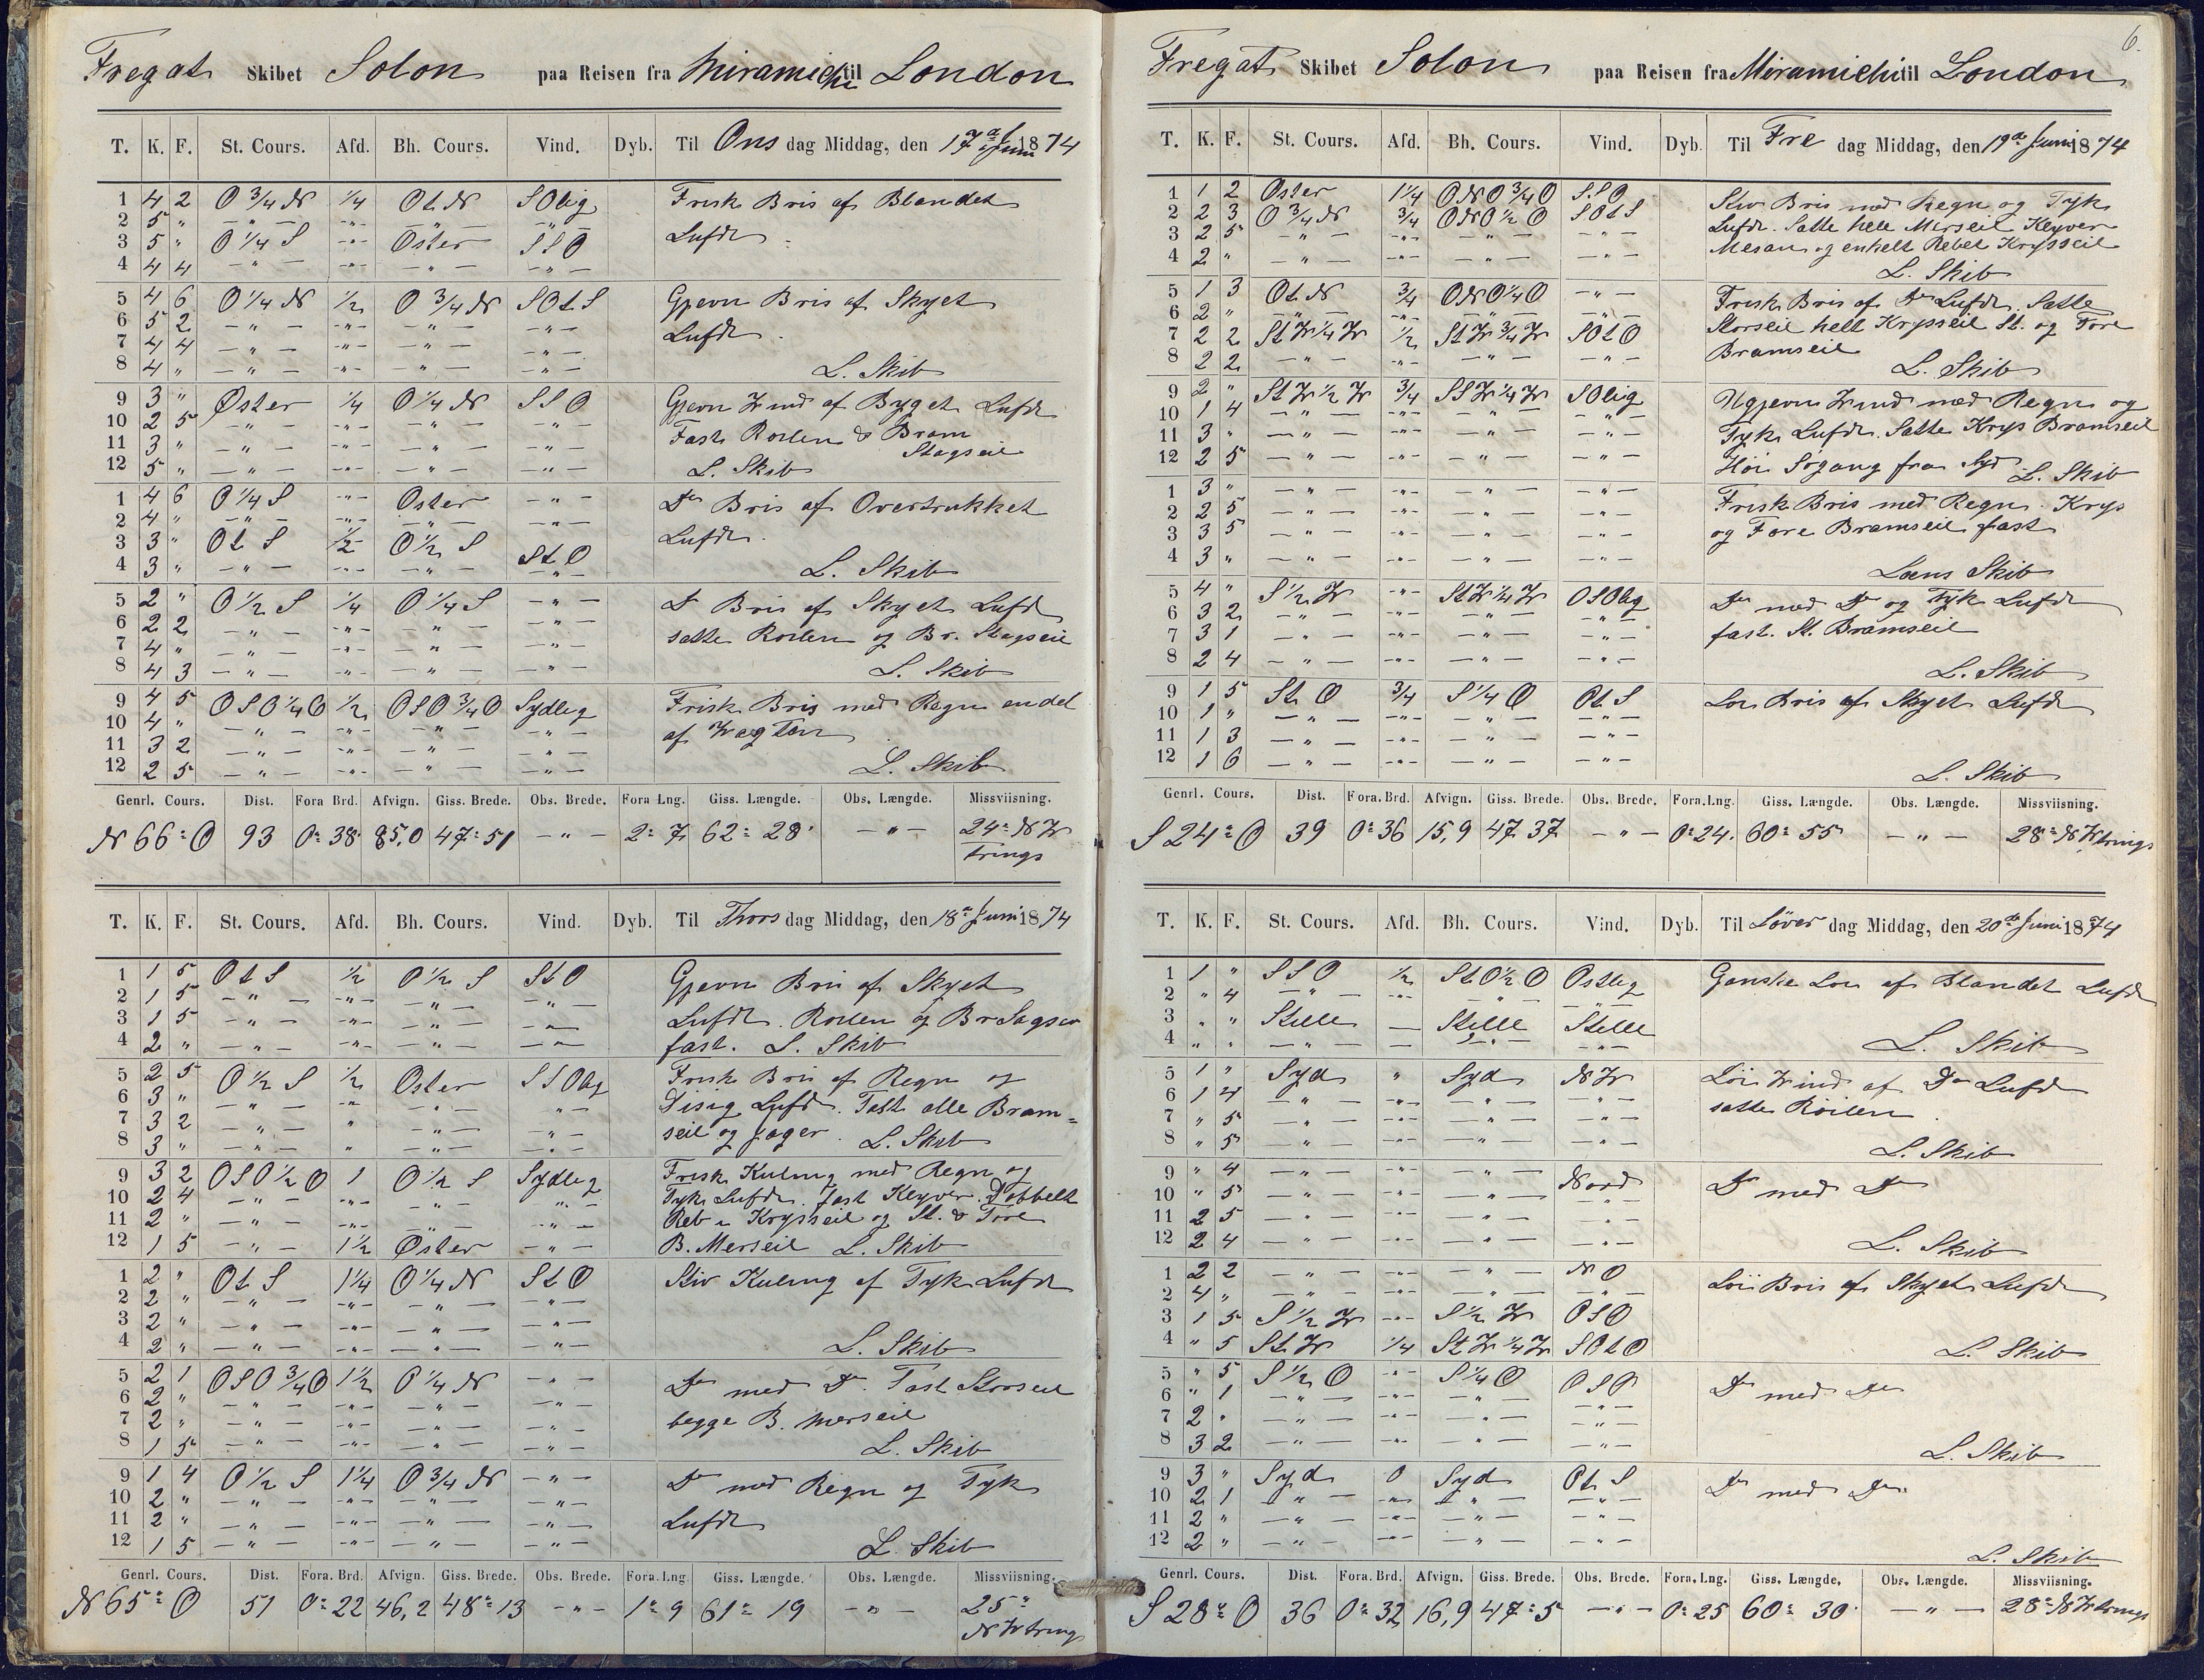 Fregat Skibet Solon paa Reisen fra Miramichi til London
T. K. F. St. Cours. Afd. Bh. Cours. Vind. Dyb. Til Ons dag Middag, den 17de Juni 1874
1 4 2 O 3/4 N 1/4 Ot N SOlig Frisk Bris af Blandet
2 5 " — " — -"- — " — — " —
3 5 " O 1/4 S -"- Oster SSO Lufdt
4 4 4 — " — -"- — " — — " —
5 4 6 O 1/4 N 1/2 O 3/4 N SOtS Gjevn Bris af Skyet
6 5 2 — " — -"- — " — — " —
7 4 4 — " — -"- — " — — " — Lufdt
8 4 " — " — -"- — " — — " — L. Skib
9 3 " Øster 1/4 O 1/4 N SSO Gjevn Vind af Byget Lufdt
10 2 5 — " — -"- — " — — " — Fast Roilen & Bram
11 3 " — " — -"- — " — — " — Stagseil
12 5 " — " — -"- — " — — " — L. Skib
1 4 6 O 1/4 S -"- Oster — " — Do Bris af Overtrukket
2 4 " — " — -"- — " — — " —
3 3 " Ot S 1/2 O 1/2 S Lufdt.
4 3 " — " — -"- — " — St O L. Skib
5 2 " O 1/2 S 1/4 O 1/4 S — " — Do Bris af Skyet Lufd
6 2 2 — " — -"- — " — — " —
7 4 " — " — -"- — " — — " — satte Roilen og Br. Stagseil
8 4 3 — " — -"- — " — — " — L. Skib
9 4 5 OSO 1/4 O 1/2 OSO 3/4 O Sydlig Frisk Bris med Regn endel
10 4 " — " — -"- — " — — " — af Vagten
11 3 2 — " — -"- — " — — " —
12 2 5 — " — -"- — " — — " — L. Skib
Genrl. Cours. Dist. Fora Brd. Afvign. Giss. Brede. Obs. Brede. Fora Lng. Giss. Længde. Obs. Længde. Missviisning.
N 66° O 93 0° 38 85,0 47° 51 — " — 2° 7 62° 28' — " — 24° NV
trings
T. K. F. St. Cours. Afd. Bh. Cours. Vind. Dyb. Til Thors dag Middag, den 18de Juni 1874
1 1 5 Ot S 1/2 O 1/2 S St O Gjevn Bris af Skyet
2 1 5 — " — -"- — " — — " —
3 1 5 — " — -"- — " — — " — Lufdt. Roilen og Br Sagseil
4 2 " — " — -"- — " — — " — fast. L. Skib
5 2 5 O 1/2 S 1/2 Oster SSOlig Frisk Bris af Regn og
6 3 " — " — -"- — " — — " — Disig Lufdt. Fast alle Bram=
7 3 2 — " — " — " — — " — seil og jager. L. Skib
8 3 " — " — " — " — — " —
9 3 2 OSO 1/2 O 1 O 1/2 S Sydlig Frisk Kuling med Regn og
10 2 4 — " — -"- — " — — " — Tyk Lufdt. fast Klyver. Dobbelt
11 2 " — " — -"- — " — — " — Reb i Krysseil og St. & Fore
12 1 5 — " — 1 1/2 Øster — " — B. Merseil L. Skib
1 2 " Ot S 1 1/4 O 1/4 N St O Stiv Kuling af Tyk Lufdt
2 2 " — " — -"- — " — — " —
3 2 " — " — -"- — " — — " —
4 2 " — " — -"- — " — — " — L. Skib
5 2 1 OSO 3/4 O 1 1/2 O 1/4 N — " — Do med Do. Fast Storseil
6 2 " — " — -"- — " — — " —
7 2 " — " — -"- — " — — " — begge B. Merseil
8 1 5 — " — -"- — " — — " — L. Skib
9 1 4 O 1/2 S 1 1/4 O 3/4 N — " — Do med Regn og Tyk
10 2 " — " — -"- — " — — " —
11 2 " — " — -"- — " — — " — Lufdt
12 1 5 — " — -"- — " — — " — L. Skib
Genrl. Cours. Dist. Fora. Brd. Afvign. Giss. Brede. Obs. Brede. Fora. Lng. Giss. Længde. Obs. Længde. Missviisning.
N 65° O 51 0° 22 46,2 48° 13 — " — 1° 9 61° 19 — " — 25°
NVtring
6.
Fregat Skibet Solon paa Reisen fra Miramichi til London
T. K. F. St. Cours. Afd. Bh. Cours. Vind. Dyb. Til Fre dag Middag, den 19de Juni 1874
1 1 2 Oster 1 1/4 ONO 3/4 O SSO Stiv Bris med Regn og Tyk
2 2 3 O 3/4 N 3/4 ONO 1/2 O SOtS Lufdt. Satte hele Merseil Klyver
3 2 5 — " — -"- — " — — " — Mesan og enkelt Rebet Krysseil
4 2 " — " — -"- — " — — " — L. Skib
5 1 3 Ot N 3/4 ONO 1/4 O — " — Frisk Bris af Do Lufdt. Satte
6 2 " — " — -"- — " — — " — Storseil helt Krysseil St. og Fore
7 2 2 StV 1/4 V 1/2 StV 3/4 V SOtO Bramseil
8 2 2 — " — -"- — " — — " — L. Skib
9 2 " StV 1/2 V 3/4 SSV 1/4 V SOlig Ugjevn Vind med Regn og
10 1 4 — " — -"- — " — — " —
11 3 " — " — -"- — " — — " — Tyk Lufdt. Satte Krys Bramseil
12 2 5 — " — -"- — " — — " — Høi Søgang fra Syd L. Skib
1 3 " — " — -"- — " — — " — Frisk Bris med Regn. Krys
2 2 5 — " — -"- — " — — " —
3 3 5 — " — -"- — " — — " — og Fore Bramseil fast
4 3 " — " — -"- — " — — " — Læns Skib
5 4 " S 1/2 V -"- StV 1/4 V OSOlig Do med Do og Tyk Lufdt
6 3 2 — " — -"- — " — — " —
7 3 1 — " — -"- — " — — " — fast. St. Bramseil
8 2 4 — " — -"- — " — — " — L. Skib
9 1 5 St O 3/4 S 1/4 O Ot S Løi Bris af Skyet Lufdt
10 1 " — " — -"- — " — — " —
11 1 3 — " — -"- — " — — " —
12 1 6 — " — -"- — " — — " — L. Skib
Genrl. Cours. Dist. Fora. Brd. Afvign. Giss. Brede. Obs. Brede. Fora. Lng. Giss. Længde. Obs. Længde. Missviisning.
S 24° O 39 0° 36 15,9 47 37 — " — 0° 24. 60° 55 — " — 28° NVtrings
T. K. F. St. Cours. Afd. Bh. Cours. Vind. Dyb. Til Löver dag Middag, den 20de Juni 1874
1 1 " SSO 1/2 StO 1/2 O Ostlig Ganske Løi af Blandet Lufdt
2 " 4 — " — -"- — " — — " —
3 " " Stille — Stille Stille
4 " " — " — — — " — — " — L. Skib
5 1 " Syd " Syd NV Løi Vind af Do Lufdt
6 1 4 — " — -"- — " — — " — satte Röilen
7 " 5 — " — -"- — " — — " —
8 " 5 — " — -"- — " — — " — L. Skib
9 " 4 — " — -"- — " — Nord Do med Do
10 " 5 — " — -"- — " — — " —
11 2 5 — " — -"- — " — — " —
12 2 4 — " — -"- — " — — " — L. Skib
1 2 2 — " — -"- — " — NO Løi Bris af Skyet Lufdt
2 4 " — " — -"- — " — — " —
3 1 5 S 1/2 V -"- S 1/2 V OSO
4 " 5 St V 1/4 StV 1/4 V SOtO L. Skib
5 " 5 S 1/2 O -"- S 1/4 O OSO Do med Do
6 " 1 — " — -"- — " — — " —
7 2 " — " — -"- — " — — " —
8 3 2 — " — -"- — " — — " — L. Skib
9 3 " Syd 0 Syd Ot S Do med Do
10 2 1 — " — -"- — " — — " —
11 2 " — " — -"- — " — — " —
12 2 " — " — -"- — " — — " — L. Skib
Genrl. Cours. Dist. Fora. Brd. Afvign. Giss. Brede. Obs. Brede. Fora. Lng. Giss. Længde. Obs. Længde. Missviisning.
S 28° O 36 0° 32 16,9 47° 5 — " — 0° 25 60° 30' — " — 28° NVtrings